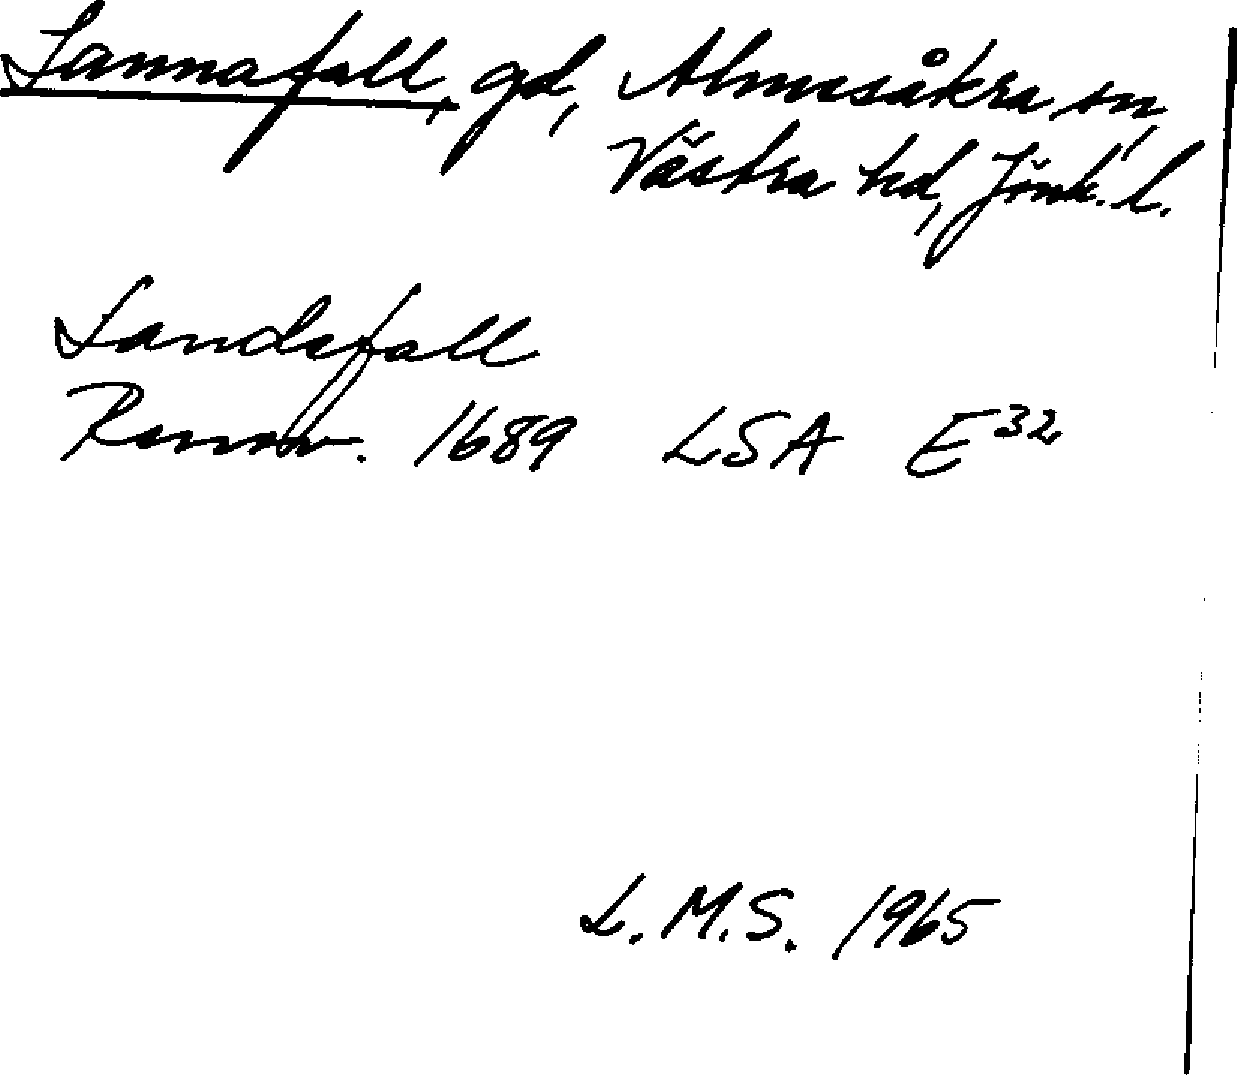 Lannafall, gd, Almesåkra sn,
Västra hd, Jönk. l.
Landsfall
Renov. 1689 LSA E32
L.M.S. 1965